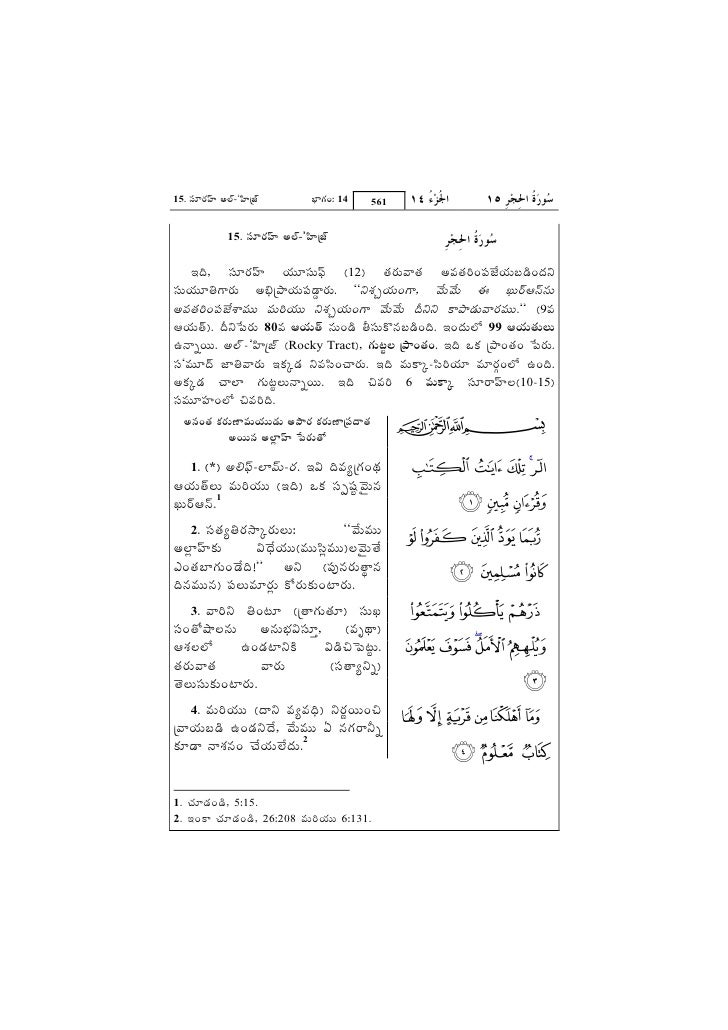 15. సూరహ్ అల్-'హిజ్ర్ భాగం: 14 561 الجُزْءُ ١٤ سُورَةُ الحِجْرِ ١٥
15. సూరహ్ అల్-'హిజ్ర్ سُورَةُ الحِجْرِ
ఇది, సూరహ్ యూసుఫ్ (12) తరువాత అవతరింపజేయబడిందని
సుయూతిగారు అభిప్రాయపడ్డారు. ‘‘నిశ్చయంగా, మేమే ఈ ఖుర్ఆన్‌ను
అవతరింపజేశాము మరియు నిశ్చయంగా మేమే దీనిని కాపాడువారము.‘‘ (9వ
ఆయత్). దీనిపేరు 80వ ఆయత్ నుండి తీసుకొనబడింది. ఇందులో 99 ఆయతులు
ఉన్నాయి. అల్-'హిజ్ర్ (Rocky Tract), గుట్టల ప్రాంతం. ఇది ఒక ప్రాంతం పేరు.
స'మూద్ జాతివారు ఇక్కడ నివసించారు. ఇది మక్కా-సిరియా మార్గంలో ఉంది.
అక్కడ చాలా గుట్టలున్నాయి. ఇది చివరి 6 మక్కా సూరాహ్‌ల(10-15)
సమూహంలో చివరిది.
అనంత కరుణామయుడు అపార కరుణాప్రదాత
అయిన అల్లాహ్ పేరుతో
1. (*) అలిఫ్-లామ్-ర. ఇవి దివ్యగ్రంథ
ఆయత్‌లు మరియు (ఇది) ఒక స్పష్టమైన
ఖుర్ఆన్.1
2. సత్యతిరస్కారులు: ‘‘మేము
అల్లాహ్‌కు విధేయు(ముస్లిము)లమైతే
ఎంతబాగుండేది!‘‘ అని (పునరుత్థాన
దినమున) పలుమార్లు కోరుకుంటారు.
3. వారిని తింటూ (త్రాగుతూ) సుఖ
సంతోషాలను అనుభవిస్తూ, (వృథా)
ఆశలలో ఉండటానికి విడిచిపెట్టు.
తరువాత వారు (సత్యాన్ని)
తెలుసుకుంటారు.
4. మరియు (దాని వ్యవధి) నిర్ణయించి
వ్రాయబడి ఉండనిదే, మేము ఏ నగరాన్నీ
కూడా నాశనం చేయలేదు.2
بِسْمِ ٱللَّهِ ٱلرَّحْمَٰنِ ٱلرَّحِيمِ
الٓر ۚ تِلْكَ ءَايَٰتُ ٱلْكِتَٰبِ
وَقُرْءَانٍ مُّبِينٍ ١
رُّبَمَا يَوَدُّ ٱلَّذِينَ كَفَرُوا۟ لَوْ
كَانُوا۟ مُسْلِمِينَ ٢
ذَرْهُمْ يَأْكُلُوا۟ وَيَتَمَتَّعُوا۟
وَيُلْهِهِمُ ٱلْأَمَلُ ۖ فَسَوْفَ يَعْلَمُونَ
٣
وَمَآ أَهْلَكْنَا مِن قَرْيَةٍ إِلَّا وَلَهَا
كِتَابٌ مَّعْلُومٌ ٤
1. చూడండి, 5:15.
2. ఇంకా చూడండి, 26:208 మరియు 6:131.